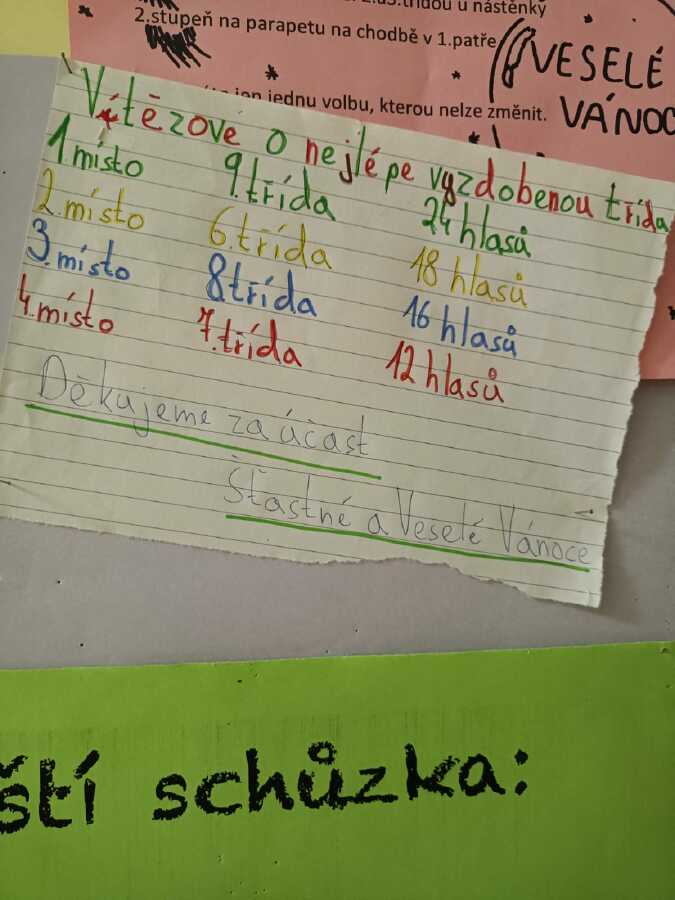 třídou u nástěnky
2.stupeň na parapetu na chodbě v 1.patře
VESELÉ
jen jednu volbu, kterou nelze změnit.
VÁNOC
Vítězove o nejlépe vyzdobenou třída
1.místo 9.třída 24 hlasů
2.místo 6.třída 18 hlasů
3.místo 8.třída 16 hlasů
4.místo 7.třída 12 hlasů
Děkujeme za účast
Šťastné a Veselé Vánoce
ští schůzka: